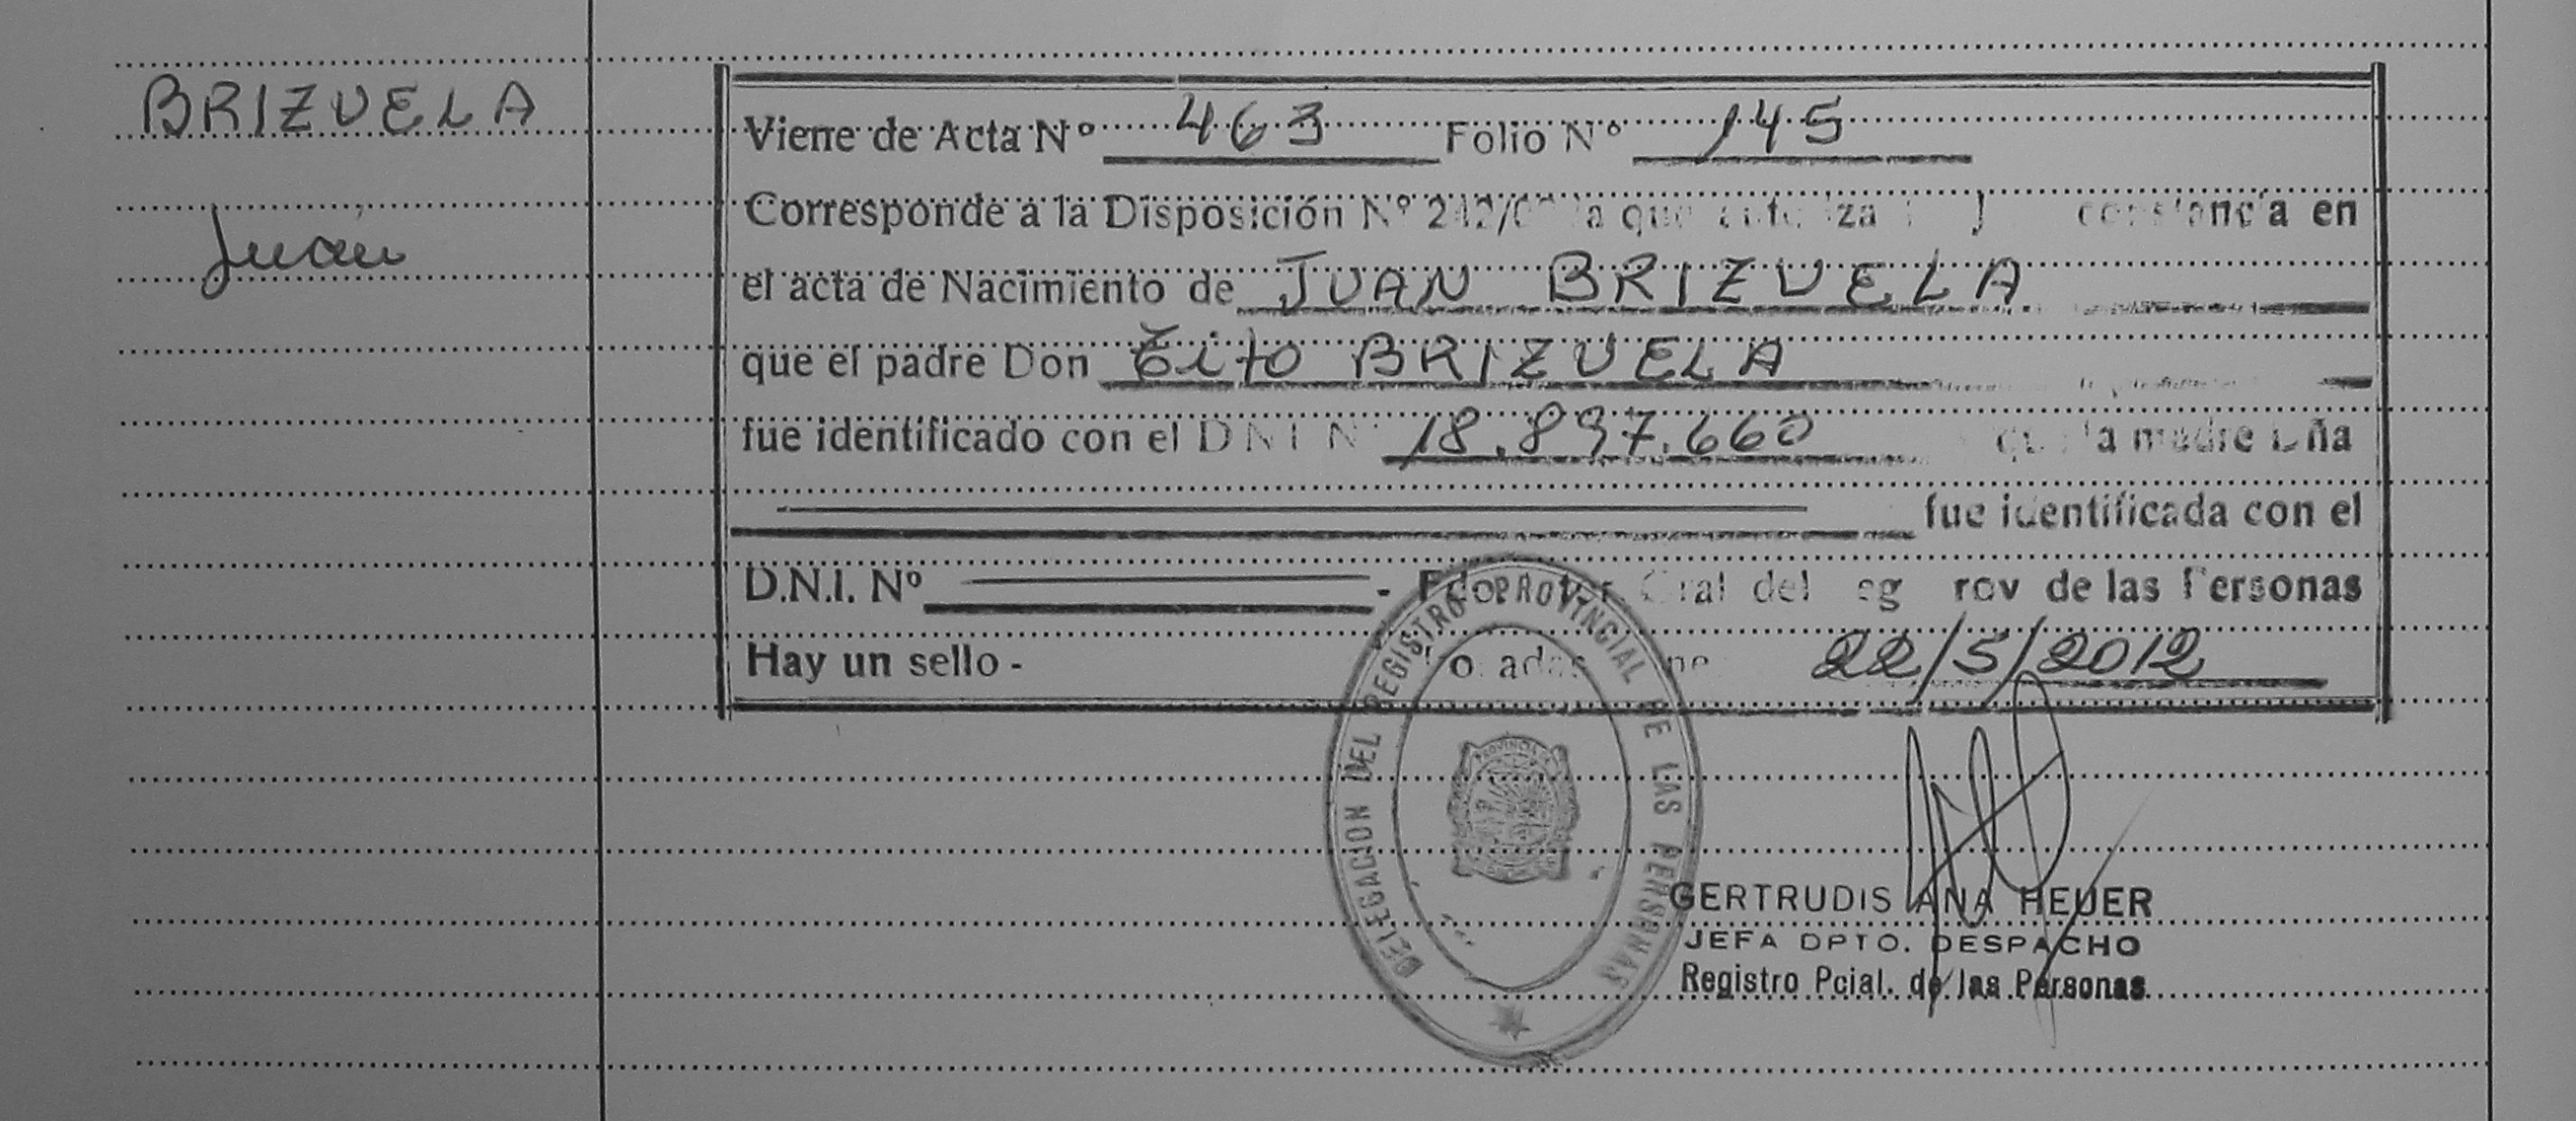 BRIZUELA
Juan
Viene de Acta Nº 463 Folio Nº 145
Corresponde a la Disposición Nº constancia en
el acta de Nacimiento de JUAN BRIZUELA
que el padre Don Tito BRIZUELA
fue identificado con el DNI Nº 18.897.660 que la madre Dña
fue identificada con el
D.N.I. Nº - Gral del Reg Prov de las Personas
Hay un sello - 22/5/2012
DELEGACION DEL REGISTRO PROVINCIAL DE LAS PERSONAS
GERTRUDIS ANA HEUER
JEFA DPTO. DESPACHO
Registro Pcial. de las Personas